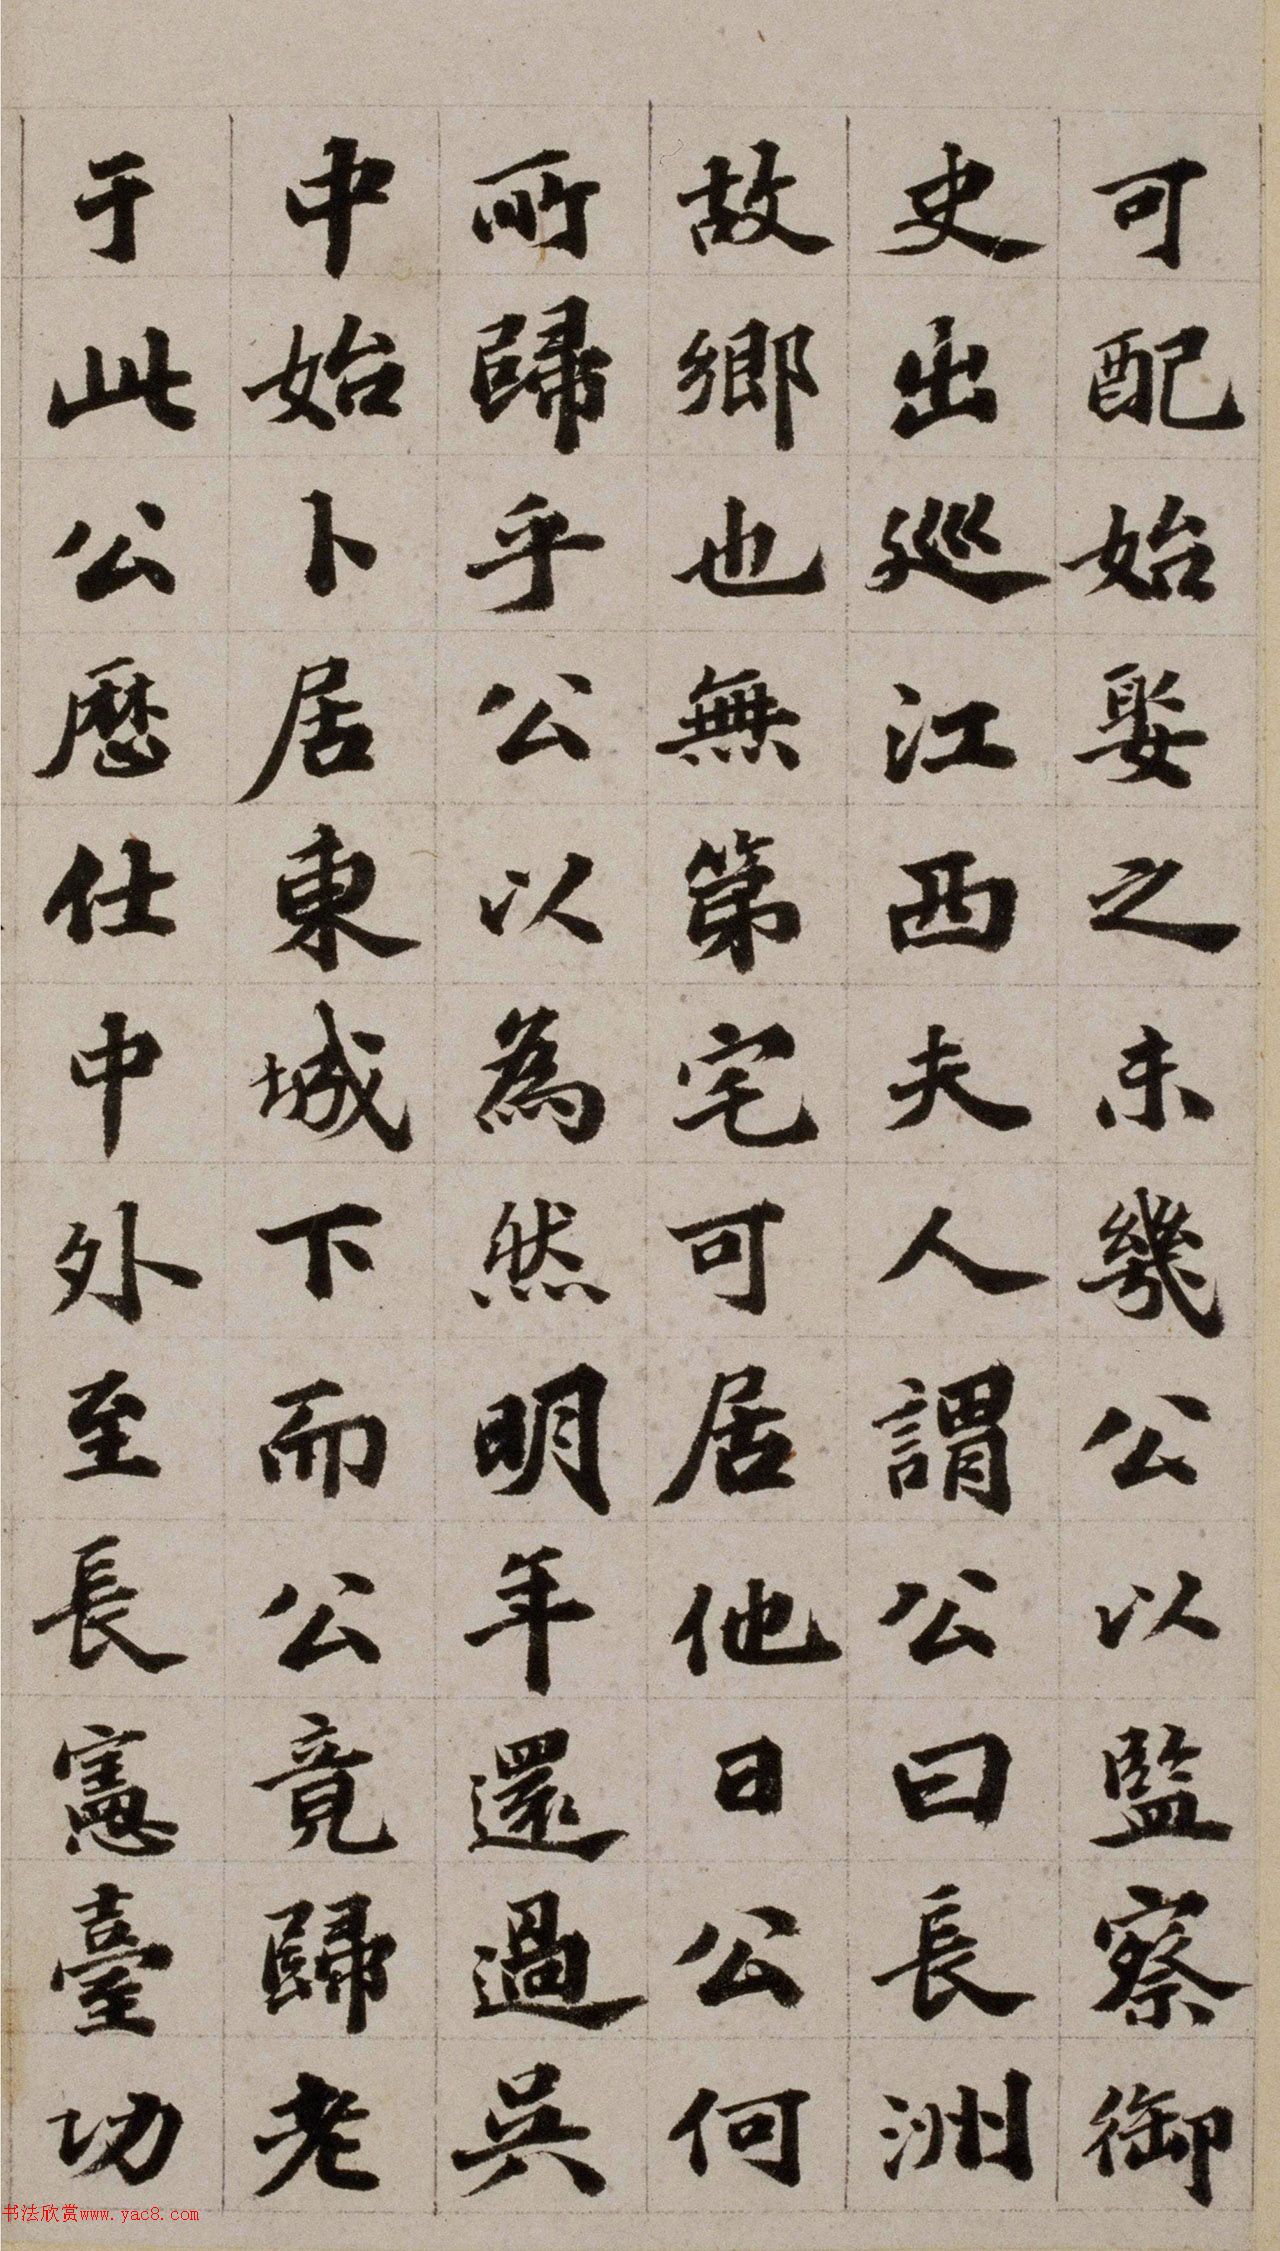 可配始娶之未幾公以監察御
史出巡江西夫人謂公曰長洲
故鄉也無第宅可居他日公何
所歸乎公以為然明年還過吳
中始卜居東城下而公竟歸老
于此公歷仕中外至長憲臺功
书法欣赏www.yac8.com